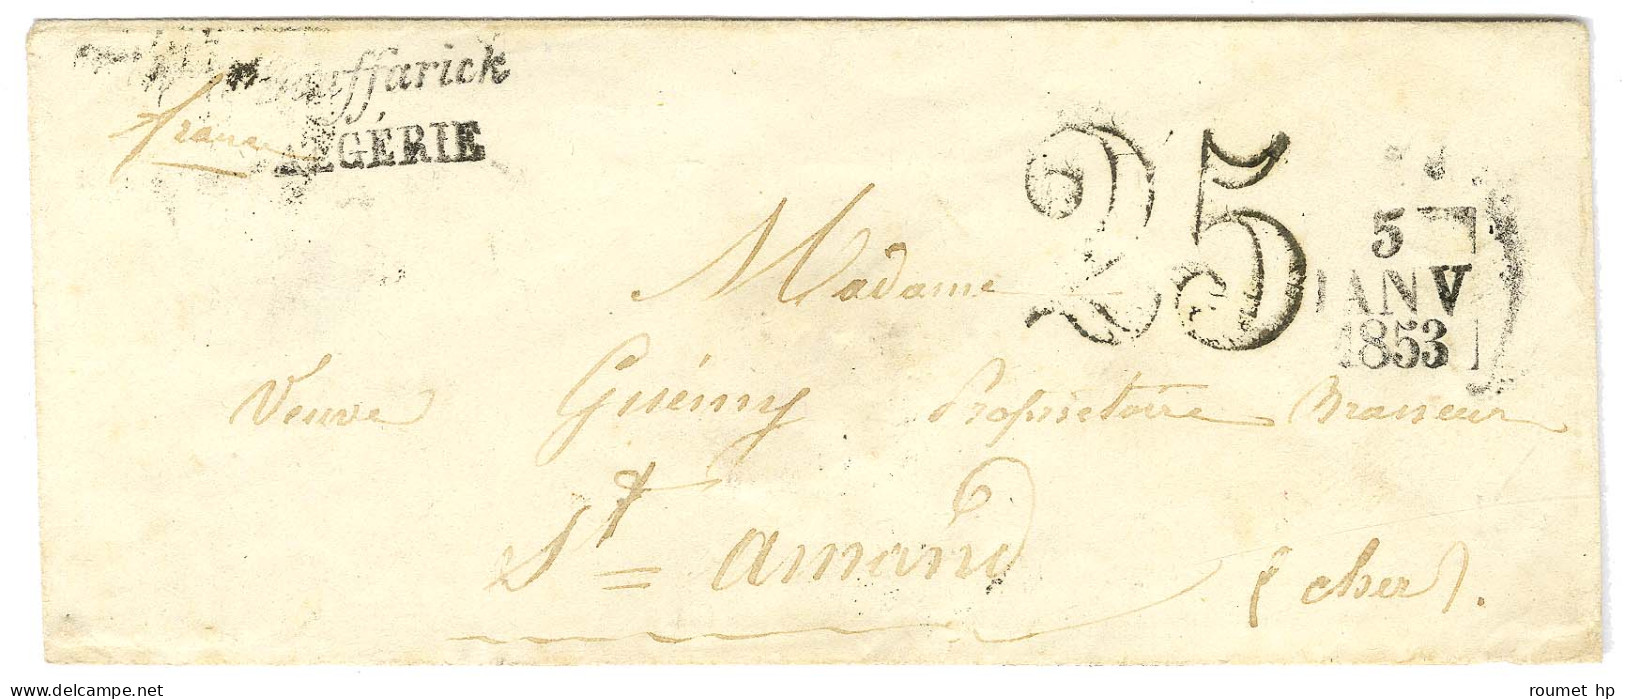 Bouffarick
france
ALGÉRIE
25
5
JANV
1853
Madame
Veuve Guéimy Propriétaire Brasseur
St = amand
( cher ).
delcampe.net
roumet hp